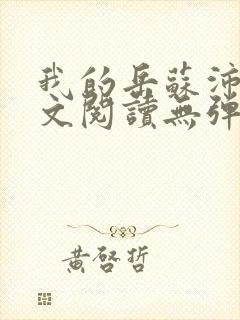 我的岳蘇沛
文閱讀無彈
黃啓哲